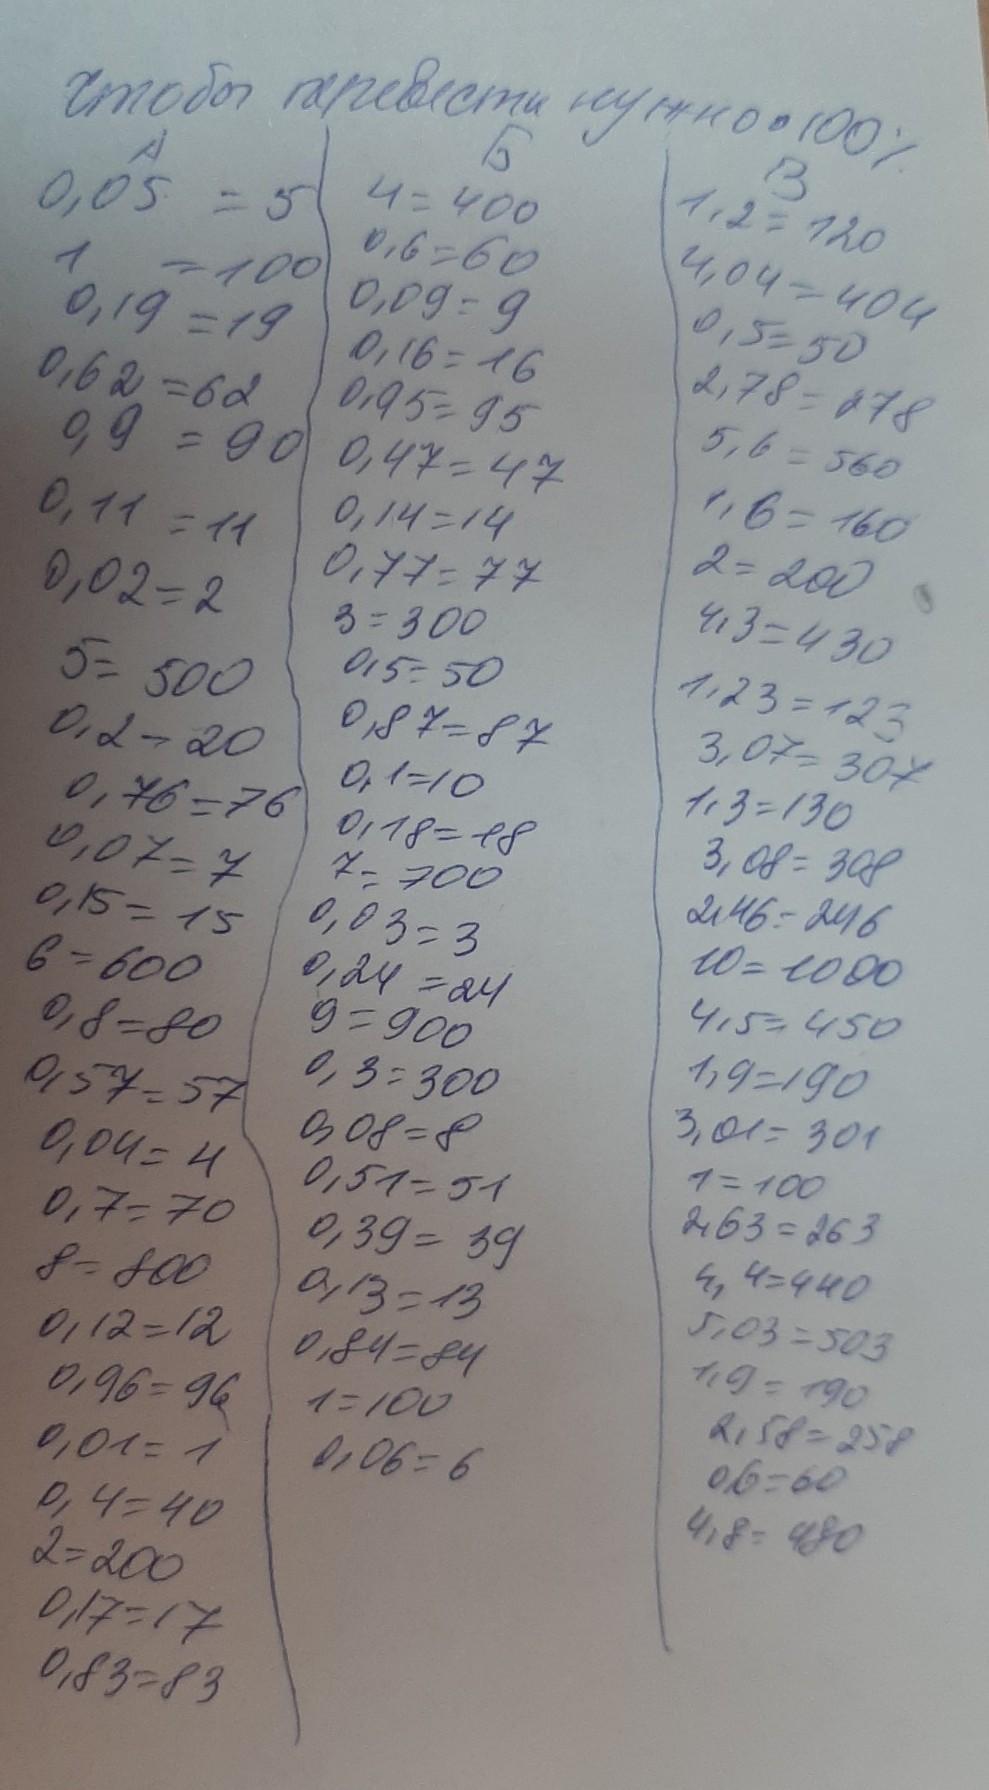 чтобы перевести нужно • 100%
А
0,05 = 5
1 = 100
0,19 = 19
0,62 = 62
0,9 = 90
0,11 = 11
0,02 = 2
5 = 500
0,2 = 20
0,76 = 76
0,07 = 7
0,15 = 15
6 = 600
0,8 = 80
0,57 = 57
0,04 = 4
0,7 = 70
8 = 800
0,12 = 12
0,96 = 96
0,01 = 1
0,4 = 40
2 = 200
0,17 = 17
0,83 = 83
Б
4 = 400
0,6 = 60
0,09 = 9
0,16 = 16
0,95 = 95
0,47 = 47
0,14 = 14
0,77 = 77
3 = 300
0,5 = 50
0,87 = 87
0,1 = 10
0,18 = 18
7 = 700
0,03 = 3
0,24 = 24
9 = 900
0,3 = 300
0,08 = 8
0,51 = 51
0,39 = 39
0,13 = 13
0,84 = 84
1 = 100
0,06 = 6
В
1,2 = 120
4,04 = 404
0,5 = 50
2,78 = 278
5,6 = 560
1,6 = 160
2 = 200
4,3 = 430
1,23 = 123
3,07 = 307
1,3 = 130
3,08 = 308
2,46 = 246
10 = 1000
4,5 = 450
1,9 = 190
3,01 = 301
1 = 100
2,63 = 263
4,4 = 440
5,03 = 503
1,9 = 190
2,58 = 258
0,6 = 60
4,8 = 480